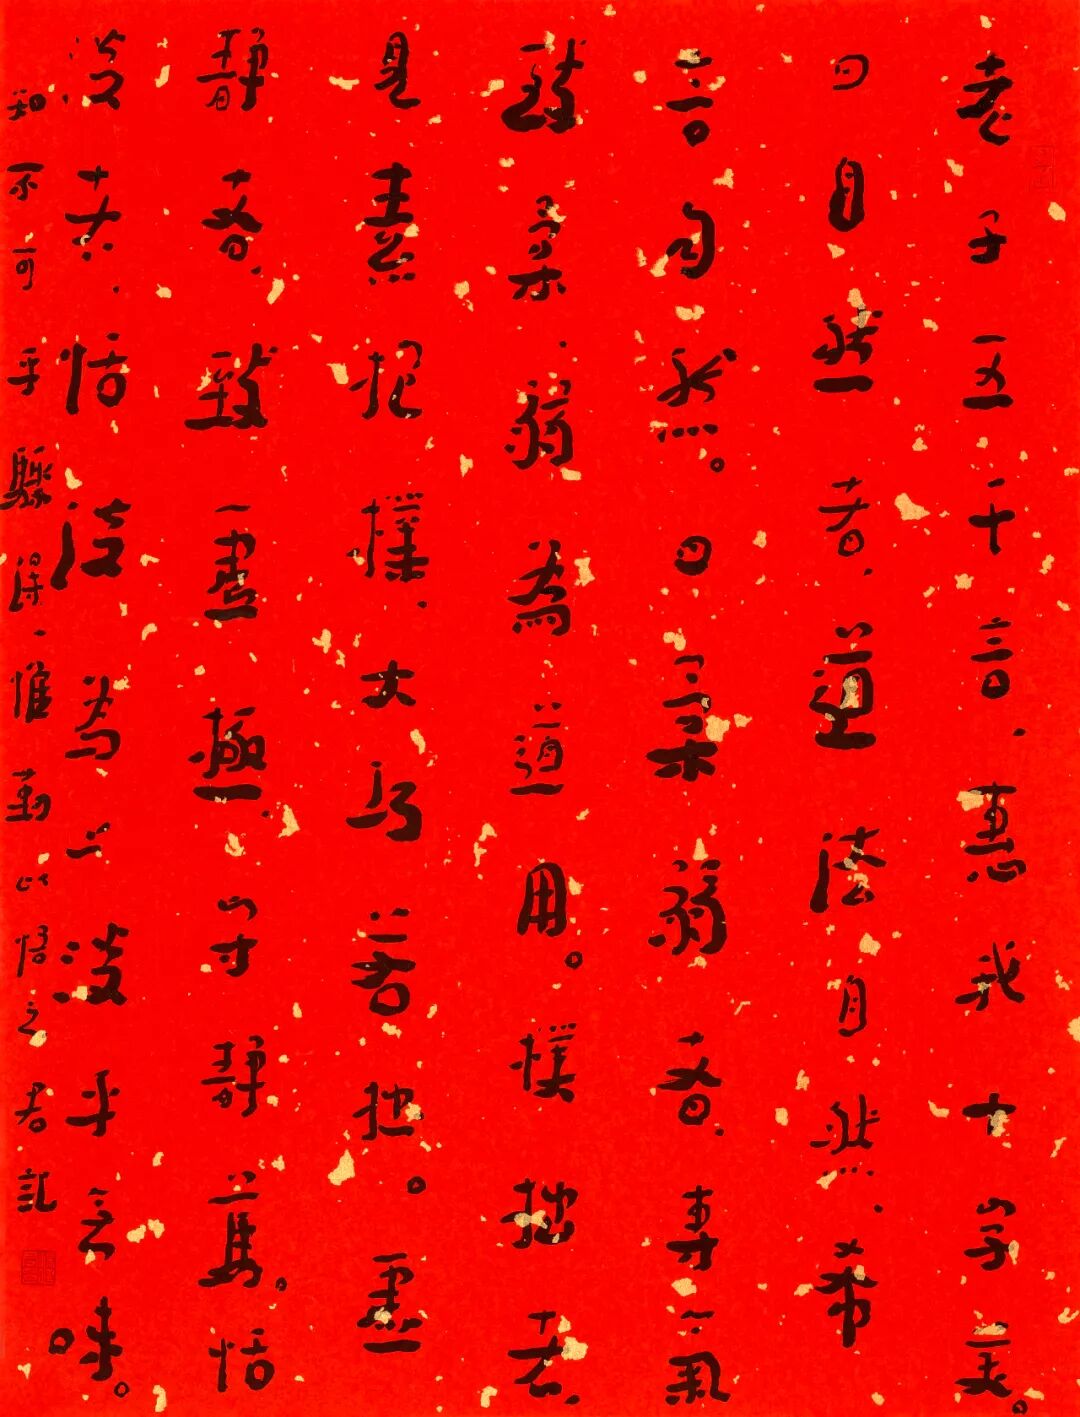 老子五千言，惠我十字矣。
曰自然者，道法自然，希
言自然。曰柔弱者，專氣
致柔，弱為道用。樸拙者，
見素抱樸，大巧若拙。虛
靜者，致虛極，守靜篤。恬
淡者，恬淡為上，淡乎味。
知不可乎驟得，惟勤以悟之 君記